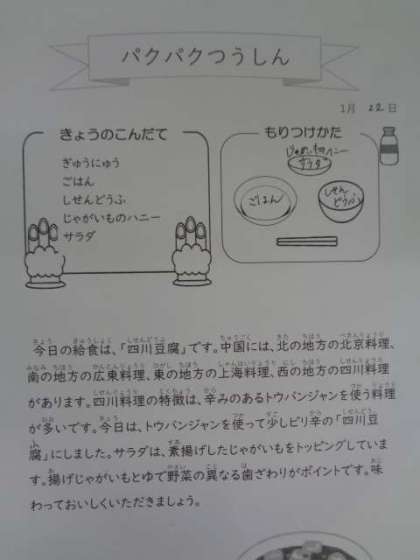 パクパクつうしん
1月 22日
きょうのこんだて
ぎゅうにゅう
ごはん
しせんどうふ
じゃがいものハニー
サラダ
もりつけかた
じゃがいものハニー
サラダ
ごはん
しせん
どうふ
今日の給食は、「四川豆腐」です。中国には、北の地方の北京料理、
南の地方の広東料理、東の地方の上海料理、西の地方の四川料理
があります。四川料理の特徴は、辛みのあるトウバンジャンを使う料理
が多いです。今日は、トウバンジャンを使って少しピリ辛の「四川豆
腐」にしました。サラダは、素揚げしたじゃがいもをトッピングしていま
す。揚げじゃがいもとゆで野菜の異なる歯ざわりがポイントです。味
わっておいしくいただきましょう。